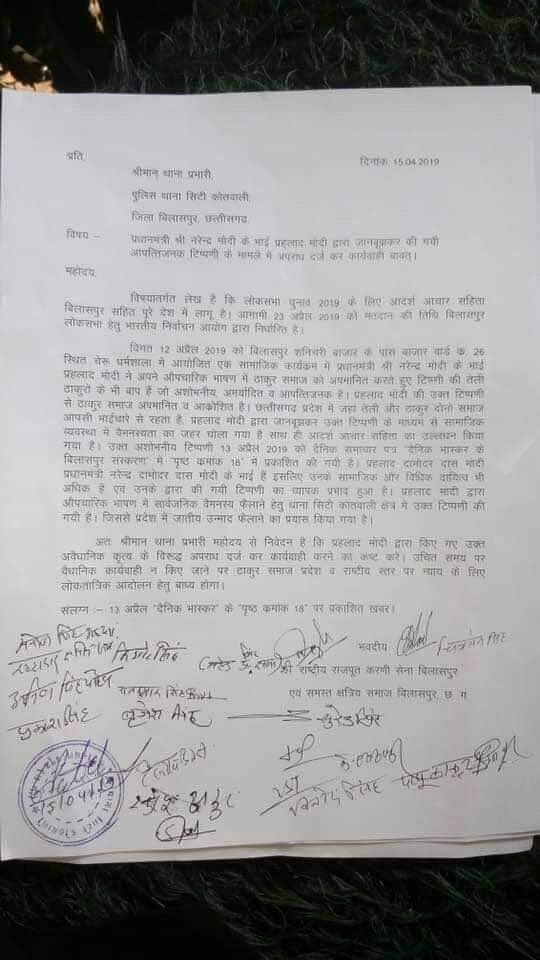 प्रति,
दिनांक 15.04.2019
श्रीमान् थाना प्रभारी,
पुलिस थाना सिटी कोतवाली,
जिला बिलासपुर, छत्तीसगढ़
विषय :– प्रधानमंत्री श्री नरेन्द्र मोदी के भाई प्रहलाद मोदी द्वारा जानबूझकर की गयी
आपत्तिजनक टिप्पणी के मामले में अपराध दर्ज कर कार्यवाही बावत्।
महोदय,
विषयातर्गत लेख है कि लोकसभा चुनाव 2019 के लिए आदर्श आचार संहिता
बिलासपुर सहित पूरे देश में लागू है। आगामी 23 अप्रैल 2019 को मतदान की तिथि बिलासपुर
लोकसभा हेतु भारतीय निर्वाचन आयोग द्वारा निर्धारित है।
विगत 12 अप्रैल 2019 को बिलासपुर शनिचरी बाजार के पास बाजार वार्ड क्र. 26
स्थित चेरू धर्मशाला में आयोजित एक सामाजिक कार्यक्रम में प्रधानमंत्री श्री नरेन्द्र मोदी के भाई
प्रहलाद मोदी ने अपने औपचारिक भाषण में ठाकुर समाज को अपमानित करते हुए टिप्पणी की तेली
ठाकुरो के भी बाप हैं जो अशोमनीय, अमर्यादित व आपत्तिजनक है। प्रहलाद मोदी की उक्त टिप्पणी
से ठाकुर समाज अपमानित व आक्रोशित है। छत्तीसगढ़ प्रदेश में जहां तेली और ठाकुर दोनो समाज
आपसी भाईचारे से रहता है, प्रहलाद मोदी द्वारा जानबूझकर उक्त टिप्पणी के माध्यम से सामाजिक
व्यवस्था में वैमनस्यता का जहर घोला गया है साथ ही आदर्श आचार संहिता का उल्लघन किया
गया है। उक्त अशोभनीय टिप्पणी 13 अप्रैल 2019 को दैनिक समाचार पत्र "दैनिक भास्कर के
बिलासपुर संस्करण" में "पृष्ठ कमांक 18" में प्रकाशित की गयी है। प्रहलाद दामोदर दास मोदी
प्रधानमंत्री नरेन्द्र दामोदर दास मोदी के भाई है इसलिए उनके सामाजिक और विधिक दायित्व भी
अधिक है एवं उनके द्वारा की गयी टिप्पणी का व्यापक प्रभाव हुआ है। प्रहलाद मोदी द्वारा
औपचारिक भाषण में सार्वजनिक वैमनस्य फैलाने हेतु थाना सिटी कोतवाली क्षेत्र मे उक्त टिप्पणी की
गयी है। जिससे प्रदेश में जातीय उन्माद फैलाने का प्रयास किया गया है।
अतः श्रीमान थाना प्रभारी महोदय से निवेदन है कि प्रहलाद मोदी द्वारा किए गए उक्त
अवैधानिक कृत्य के विरूद्ध अपराध दर्ज कर कार्यवाही करने का कष्ट करे। उचित समय पर
वैधानिक कार्यवाही न किए जाने पर ठाकुर समाज प्रदेश व राष्टीय स्तर पर न्याय के लिए
लोकतांत्रिक आदोलन हेतु बाध्य होगा।
संलग्न :– 13 अप्रैल "दैनिक भास्कर" के "पृष्ठ कमांक 18" पर प्रकाशित खबर।
भवदीय
श्री राष्टीय राजपूत करणी सेना बिलासपुर
एवं समस्त क्षत्रिय समाज बिलासपुर, छ ग